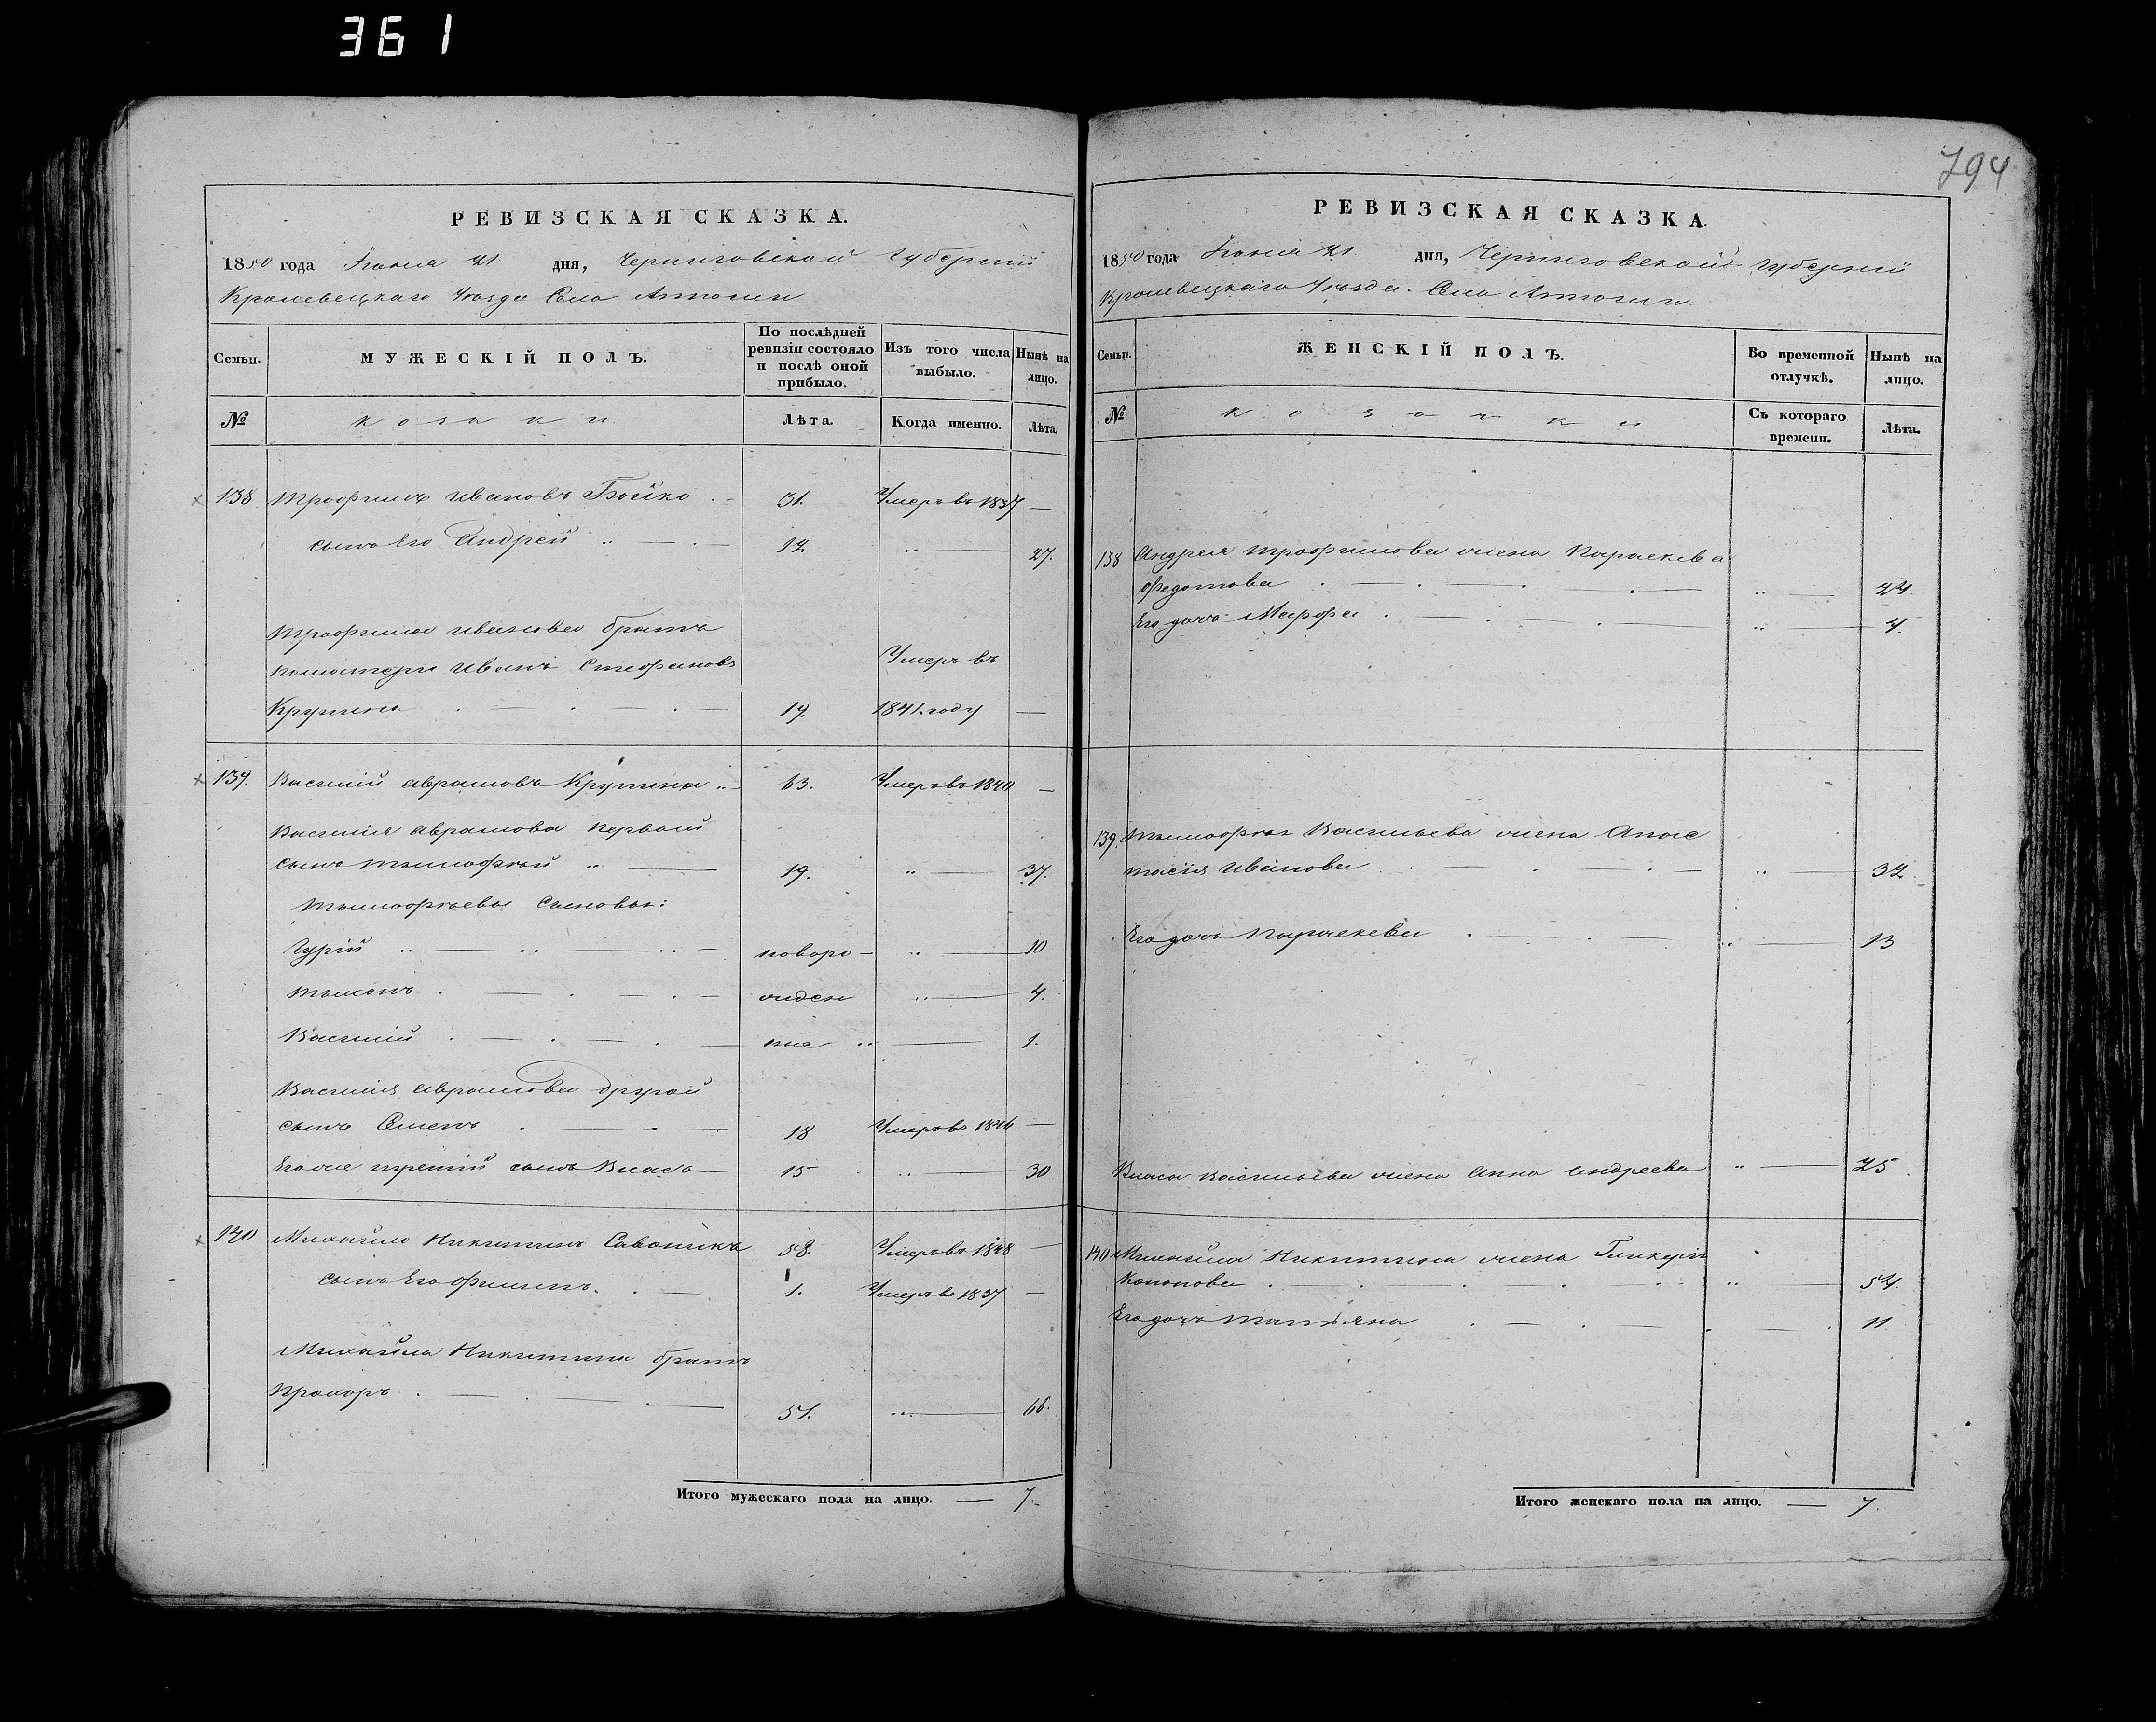 361
794
РЕВИЗСКАЯ СКАЗКА.
1850 года Іюня 21 дня, Черниговской Губерніи
Кролевецкаго Уезда Села
МУЖЕСКІЙ ПОЛЪ.
Семьи.
По послѣдней ревизіи состояло и послѣ оной прибыло.
Изъ того числа выбыло.
Нынѣ на лицо.
№ козаки Лѣта. Когда именно. Лѣта.
138 Трофимъ Ивановъ Бойко 31. Умеръ въ 1837 —
сынъ Его Андрей 12. 27.
Трофима Иванова братъ
поматери Иванъ Стефановъ Умеръ въ
19. 1841. году —
139. Василій Аврамовъ 63. Умеръ въ 1840 —
Василія Аврамова первый
сынъ Тымофѣй 19. 37.
Тымофѣевы Сыновья:
Гурій новоро 10
жден 4.
Василій ные 1.
Василія Аврамова другой
сынъ Семенъ 18 Умеръ въ 1846 —
Егоже третій сынъ Власъ 15 30
140 Михайло Никитинъ 58. Умеръ въ 1848 —
сынъ Его 1. Умеръ въ 1837 —
Михайла Никитина братъ
Прохоръ 51. 66.
Итого мужескаго пола на лицо. — 7.
РЕВИЗСКАЯ СКАЗКА.
1850 года Іюня 21 дня, Черниговской Губерніи
Кролевецкаго Уезда. Села
Семьи.
ЖЕНСКІЙ ПОЛЪ.
Во временной отлучкѣ.
Нынѣ на лицо.
№ козачки Съ котораго времени. Лѣта.
138 Андрея Трофимова жена Параскева
Федотова 24.
Его дочь Марфа 4.
139. Тымофѣя Васильева жена Анас
тасія Иванова 32
Его дочь Параскева 13
Власа Васильева жена Анна Андреева 25
140 Михайла Никитина жена Гликерія
Кононова 54.
Его дочь Татіяна 11
Итого женскаго пола на лицо. — 7.